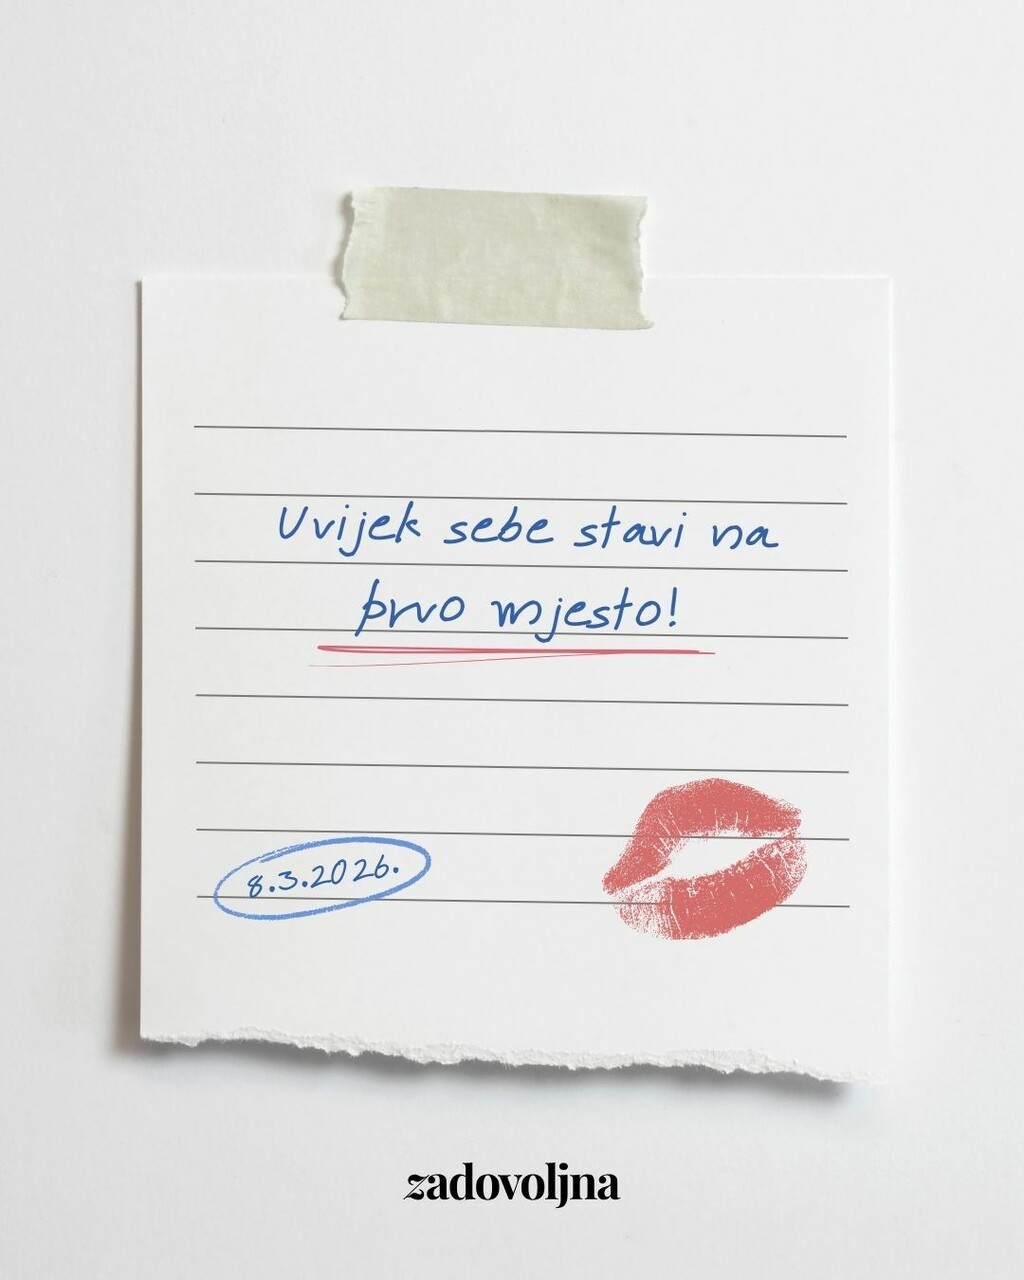 Uvijek sebe stavi na
prvo mjesto!
8.3.2026.
zadovoljna